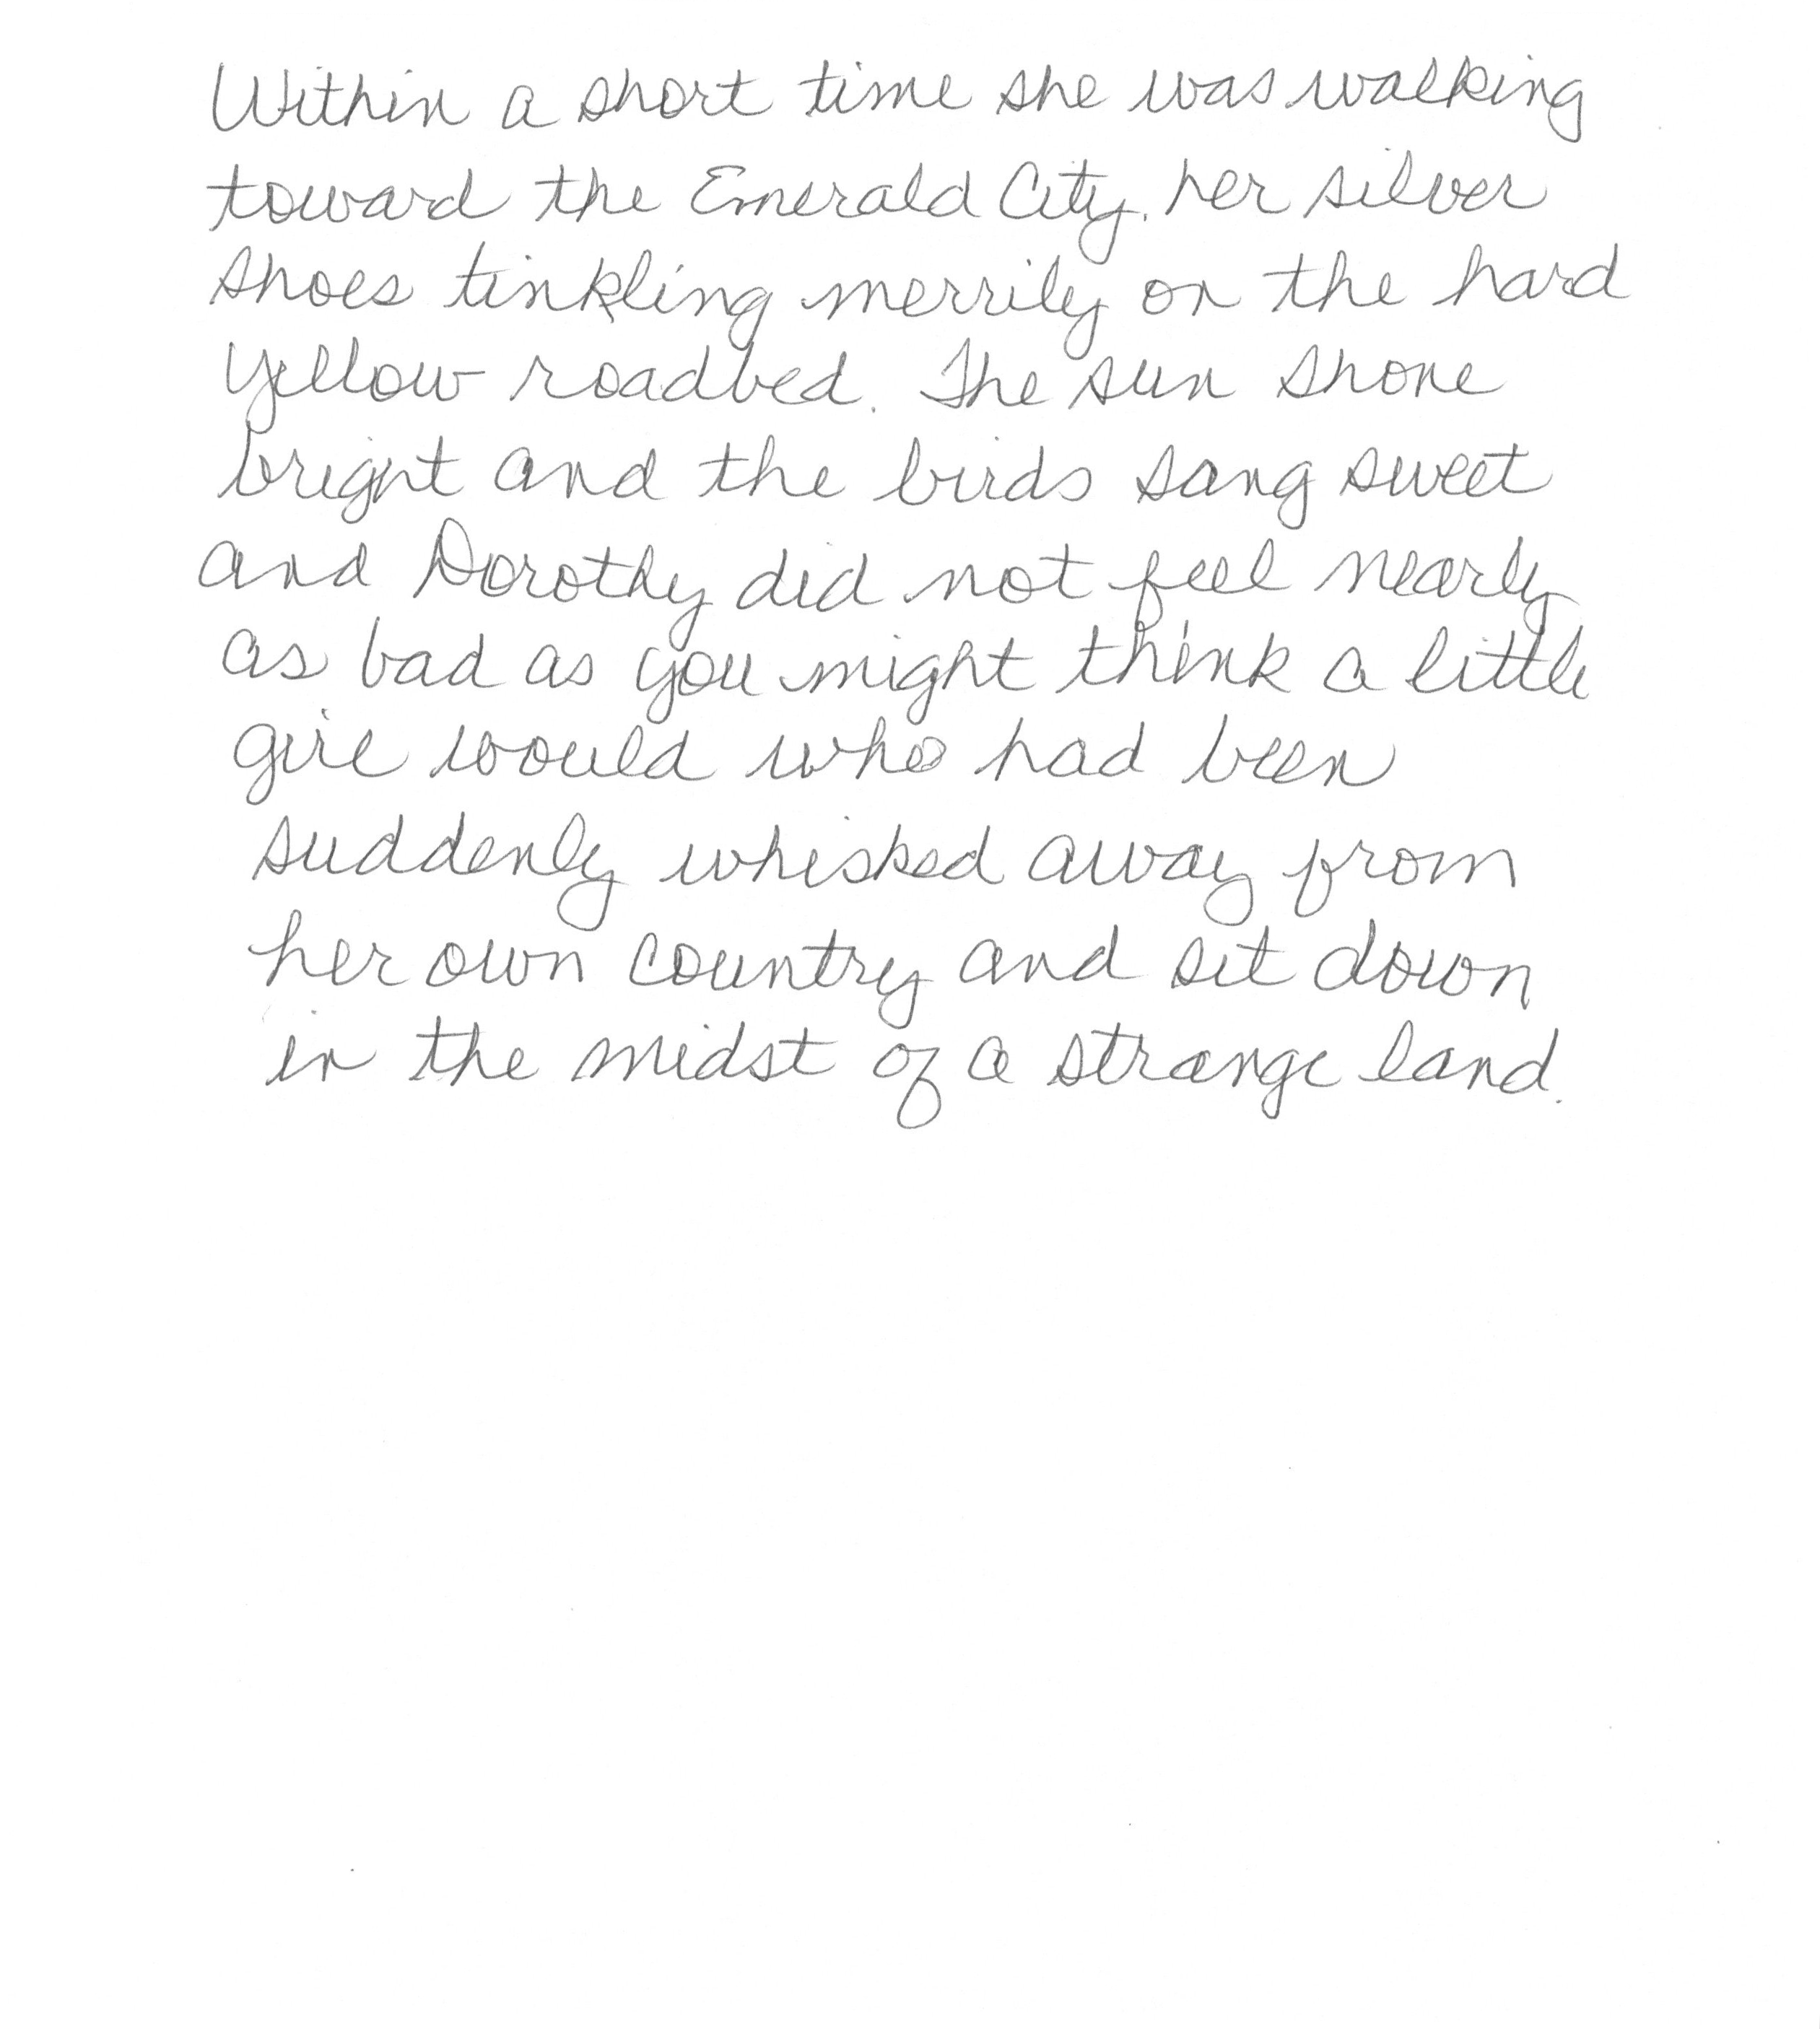 Within a short time she was walking
toward the Emerald City, her silver
shoes tinkling merrily on the hard
yellow roadbed. The sun shone
bright and the birds sang sweet
and Dorothy did not feel nearly
as bad as you might think a little
girl would who had been
suddenly whisked away from
her own country and set down
in the midst of a strange land.